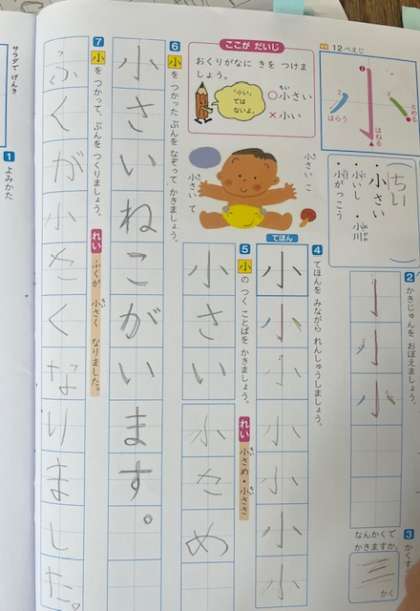 12ページ
はらう
とめる
はねる
ちい
・小さい
・小いし
・小川
・小がっこう
2 かきじゅんを おぼえましょう。
3
なんかくで
かきますか。
三 かく
ここが だいじ
おくりがなに きを つけま
しょう。
「小い」
では
ないよ。
○小さい
×小い
小さい こ
小さい て
4 てほんを みながら れんしゅうしましょう。
てほん
小
小
小
小
小
小
小
5 小 の つく ことばを かきましょう。
れい 小さめ・小ささ
小さい
小さめ
6 小 を つかった ぶんを なぞって かきましょう。
小さいねこがいます。
7 小 を つかって、ぶんを つくりましょう。
れい ふくが 小さく なりました。
ふくが小さくなりました。
サラダで げんき
1 よみかた